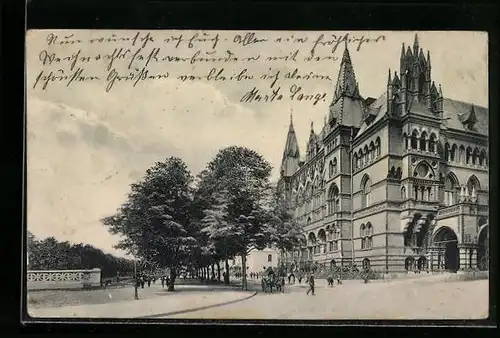 Nun wünsche ich Euch Allen ein fröhliches
Weihnachtsfest verbunden mit den
schönsten Grüßen verbleibe ich alleine
Marta Lange